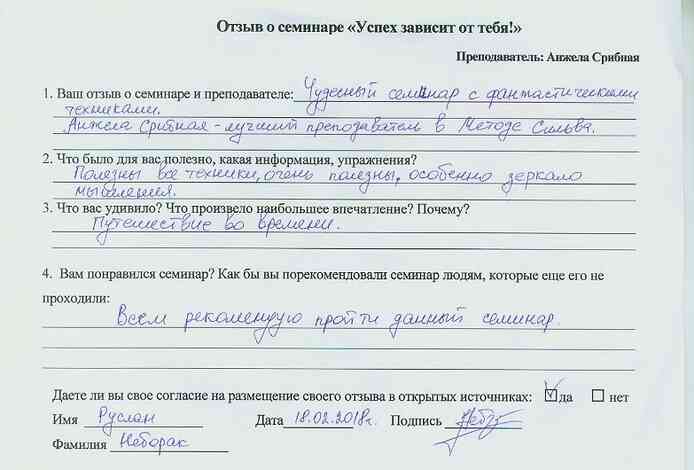 Отзыв о семинаре «Успех зависит от тебя!»
Преподаватель: Анжела Срибная
1. Ваш отзыв о семинаре и преподавателе: Чудесный семинар с фантастическими
техниками.
Анжела Срибная - лучший преподаватель в Методе Сильва.
2. Что было для вас полезно, какая информация, упражнения?
Полезны все техники, очень полезны, особенно зеркало
мышления.
3. Что вас удивило? Что произвело наибольшее впечатление? Почему?
Путешествие во времени.
4. Вам понравился семинар? Как бы вы порекомендовали семинар людям, которые еще его не
проходили:
Всем рекомендую пройти данный семинар.
Даете ли вы свое согласие на размещение своего отзыва в открытых источниках: да нет
Имя Руслан Дата 18.02.2018г. Подпись
Фамилия Неборак